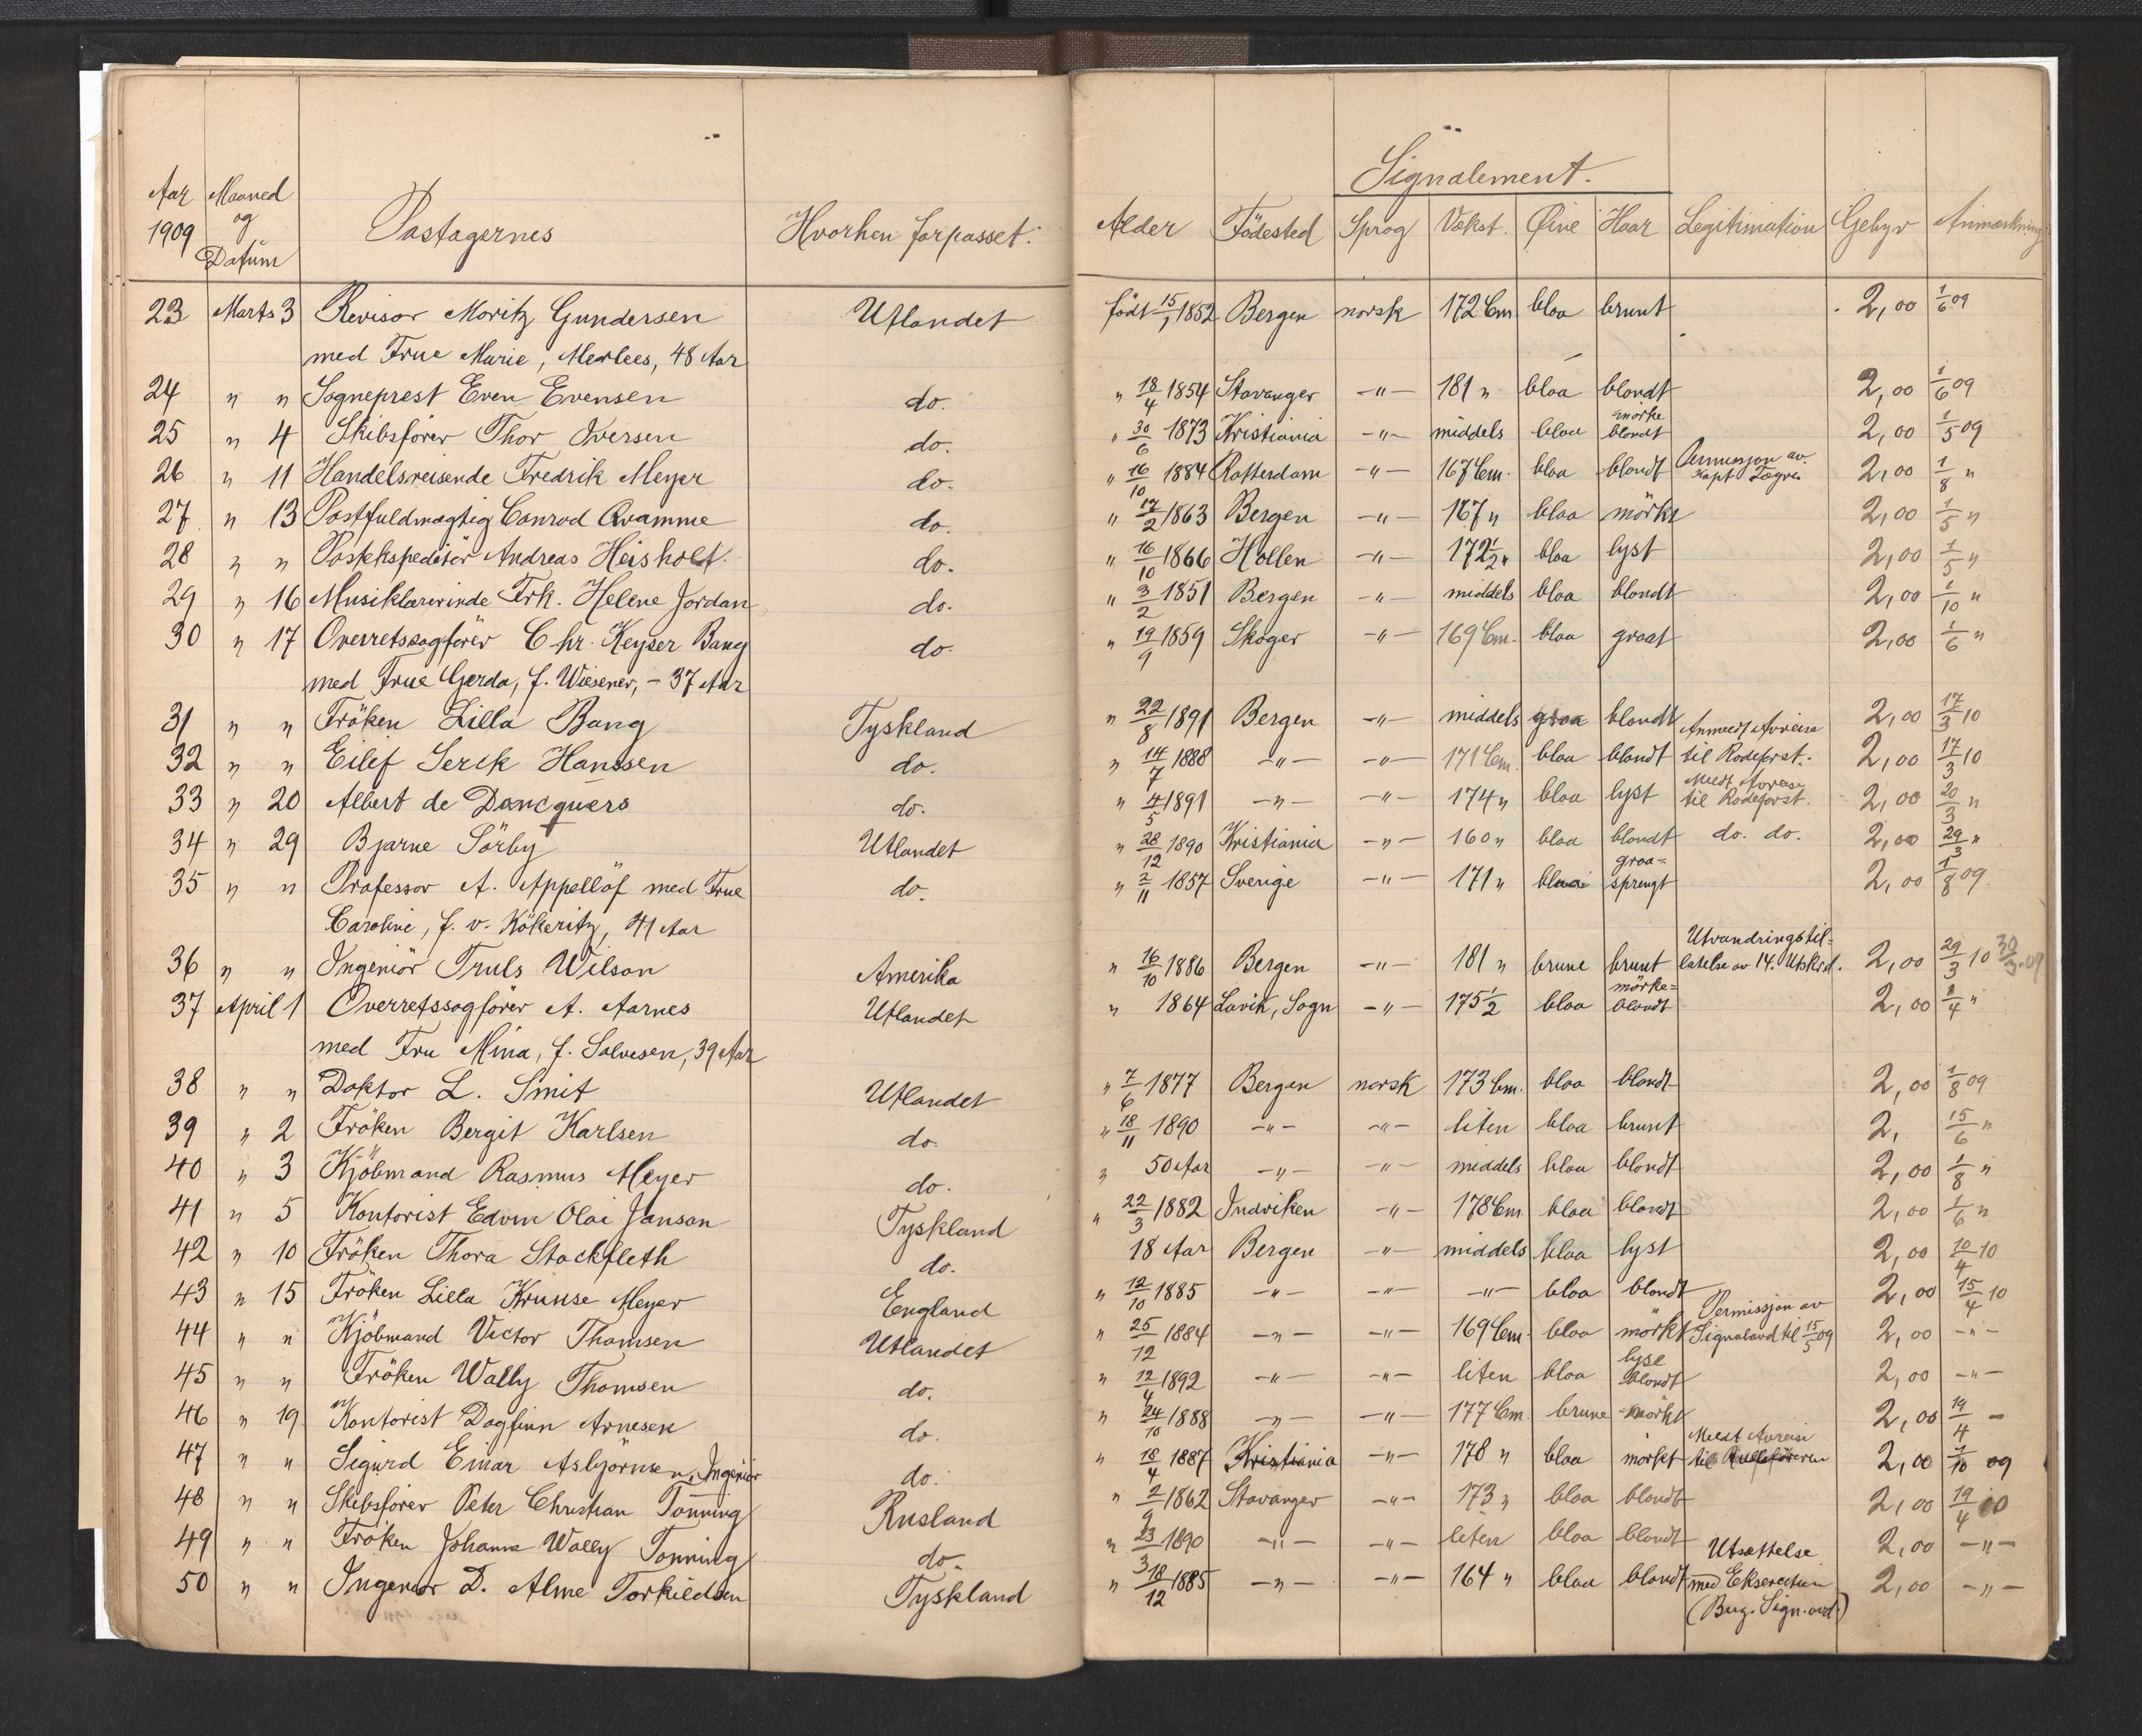 Signalement.
Aar 1909 Maaned og Datum Pastagernes Hvorhen forpasset: Alder Födested Sprog Vekst. Øine Haar Legitimation Gebyr Anmærkning
23 Marts 3 Revisor Moritz Gundersen Utlandet født 15/1 1852 Bergen norsk 172 Cm bloa brunt 2,00 1/6 09
med Frue Marie, 48 Aar
24 " " Sogneprest Even Evensen do. " 18/4 1854 Stavanger -"- 181 " bloa blondt 2,00 1/6 09
25 " 4 Skibsfører Thor Iversen do. " 30/6 1873 Kristiania -"- middels bloa mörke blondt 2,00 1/5 09
26 " 11 Handelsreisende Fredrik Meyer do. " 16/10 1884 Rotterdam -"- 167 Cm. bloa blondt av Kapt 2,00 1/8 "
27 " 13 Postfuldmægtig Conrad Qvamme do. " 17/2 1863 Bergen -"- 167 " bloa mörkt 2,00 1/5 "
28 " " Postekspeditör Andreas Heisholt. do. " 16/10 1866 Hollen -"- 172 1/2 " bloa lyst 2,00 1/5 "
29 " 16 Musiklærerinde Frk. Helene Jordan do. " 3/2 1851 Bergen -"- middels bloa blondt 2,00 1/10 "
30 " 17 Overretssagfører Chr. Keyser Bang do. " 19/9 1859 Skoger -"- 169 Cm. bloa graat 2,00 1/6 "
med Frue Gerda, f. Wiesener, - 37 Aar
31 " " Fröken Lilla Bang Tyskland " 22/8 1891 Bergen -"- middels graa blondt 2,00 17/3 10
32 " " Eilef Serck Hanssen do. " 14/7 1888 -"- -"- 171 Cm. bloa blondt Anmeldt Avreise til Rodeforst. 2,00 17/3 10
33 " 20 Albert de Dancquers do. " 4/5 1891 -"- -"- 174 " bloa lyst Meldt Avreise til Rodeforst. 2,00 20/3 "
34 " 29 Bjarne Sörby Utlandet " 28/12 1890 Kristiania -"- 160 " bloa blondt do. do. 2,00 29/3 "
35 " " Professor A. Appellöf med Frue do. " 2/11 1857 Sverige -"- 171 " bloa graa= sprengt 2,00 1/8 09.
Caroline, f. v. Kökeritz, 41 Aar
36 " " Ingeniör Truls Wilson Amerika " 16/10 1886 Bergen -"- 181 " brune brunt Utvandringstil= latelse av 14. Utskrd. 2,00 29/3 10 30/3.09
37 April 1 Overretssagfører A. Aarnes Utlandet " 1864 Lavik, Sogn -"- 175 1/2 bloa mörke= blondt 2,00 1/4 "
med Fru Mina, f. Salvesen, 39 Aar
38 " " Doktor L. Smit Utlandet " 7/6 1877 Bergen norsk 173 Cm. bloa blondt 2,00 1/8 09
39 " 2 Fröken Bergit Karlsen do. " 18/11 1890 -"- -"- liten bloa brunt 2, 15/6 "
40 " 3 Kjöbmand Rasmus Meyer do. " 50 Aar -"- -"- middels bloa blondt 2,00 1/8 "
41 " 5 Kontorist Edvin Olai Janson Tyskland " 22/3 1882 Indviken -"- 178 Cm bloa blondt 2,00 1/6 "
42 " 10 Fröken Thora Stockfleth do. 18 Aar Bergen -"- middels bloa lyst 2,00 10/4 10
43 " 15 Fröken Lilla Kruuse Meyer England " 12/10 1885 -"- -"- -"- bloa blondt 2,00 15/4 10
44 " " Kjöbmand Victor Thomsen Utlandet " 25/12 1884 -"- -"- 169 Cm. bloa mörkt Permissjon av til 15/5 09 2,00 -"-
45 " " Fröken Wally Thomsen do. " 12/4 1892 -"- -"- liten bloa lyse blondt 2,00 -"-
46 " 19 Kontorist Dagfinn Arnesen do. " 24/10 1888 -"- -"- 177 Cm. brune mörkt 2,00 19/4 -
47 " " Sigurd Einar Asbjörnsen, Ingeniör do. " 18/4 1887 Kristiania -"- 178 " bloa mörkt Meldt Avreise til Rulleföreren 2,00 1/10 09
48 " " Skibsfører Peter Christian Tönning Rusland " 2/9 1862 Stavanger -"- 173 " bloa blondt 2,00 19/4 10
49 " " Fröken Johanne Wally Tonning do. " 23/3 1890 -"- -"- liten bloa blondt 2,00 -"-
50 " " Ingeniör D. Alme Torkildsen Tyskland " 18/12 1885 -"- -"- 164 " bloa blondt Utsættelse med Ekserection (Berg. Sign. avd.) 2,00 -"-